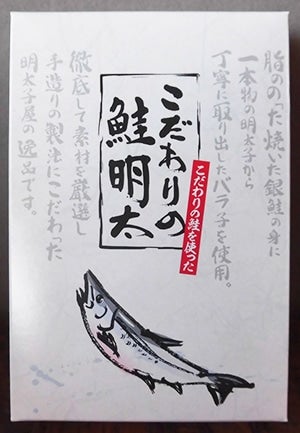 脂ののった焼いた銀鮭の身に
一本物の明太子から
丁寧に取り出したバラ子を使用。
こだわりの
鮭明太
こだわりの鮭を使った
徹底して素材を厳選し
手造りの製法にこだわった
明太子屋の逸品です。